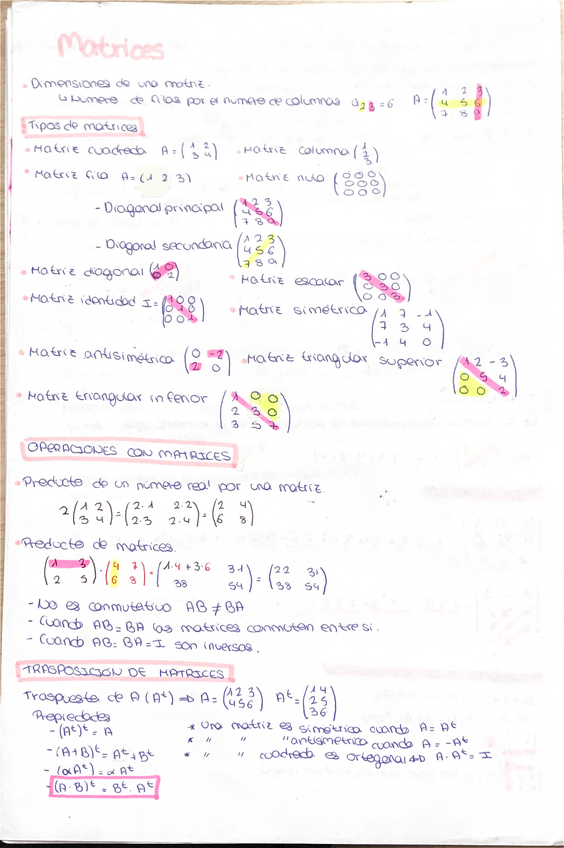 Matrices
• Dimensiones de una matriz.
↳ Numero de filas por el numero de columnas a₂₃ = 6 A = (1 2 3 / 4 5 6 / 7 8 9)
Tipos de matrices
• Matriz cuadrada A = (1 2 / 3 4) • Matriz columna (1 / 2 / 3)
• Matriz fila A = (1 2 3) • Matriz nula (0 0 0 / 0 0 0 / 0 0 0)
- Diagonal principal (1 2 3 / 4 5 6 / 7 8 9)
- Diagonal secundaria (1 2 3 / 4 5 6 / 7 8 9)
• Matriz diagonal (1 0 / 0 2) • Matriz escalar (3 0 0 / 0 3 0 / 0 0 3)
• Matriz identidad I = (1 0 0 / 0 1 0 / 0 0 1) • Matriz simétrica (1 7 -1 / 7 3 4 / -1 4 0)
• Matriz antisimétrica (0 -2 / 2 0) • Matriz triangular superior (1 2 -3 / 0 5 4 / 0 0 2)
• Matriz triangular inferior (1 0 0 / 2 3 0 / 3 5 7)
OPERACIONES CON MATRICES
• Producto de un número real por una matriz.
2 (1 2 / 3 4) = (2·1 2·2 / 2·3 2·4) = (2 4 / 6 8)
• Producto de matrices.
(1 3 / 2 5) · (4 7 / 6 8) = (1·4 + 3·6 31 / 38 54) = (22 31 / 38 54)
- No es conmutativo AB ≠ BA
- Cuando AB = BA las matrices conmutan entre si.
- Cuando AB = BA = I son inversas.
TRASPOSICIÓN DE MATRICES
Traspuesta de A (Aᵗ) ⇒ A = (1 2 3 / 4 5 6) Aᵗ = (1 4 / 2 5 / 3 6)
Propiedades
- (Aᵗ)ᵗ = A * Una matriz es simétrica cuando A = Aᵗ
- (A+B)ᵗ = Aᵗ + Bᵗ * " " " antisimétrica cuando A = -Aᵗ
- (αAᵗ) = α Aᵗ * " " cuadrada es ortogonal ⇔ A·Aᵗ = I
- (A·B)ᵗ = Bᵗ · Aᵗ